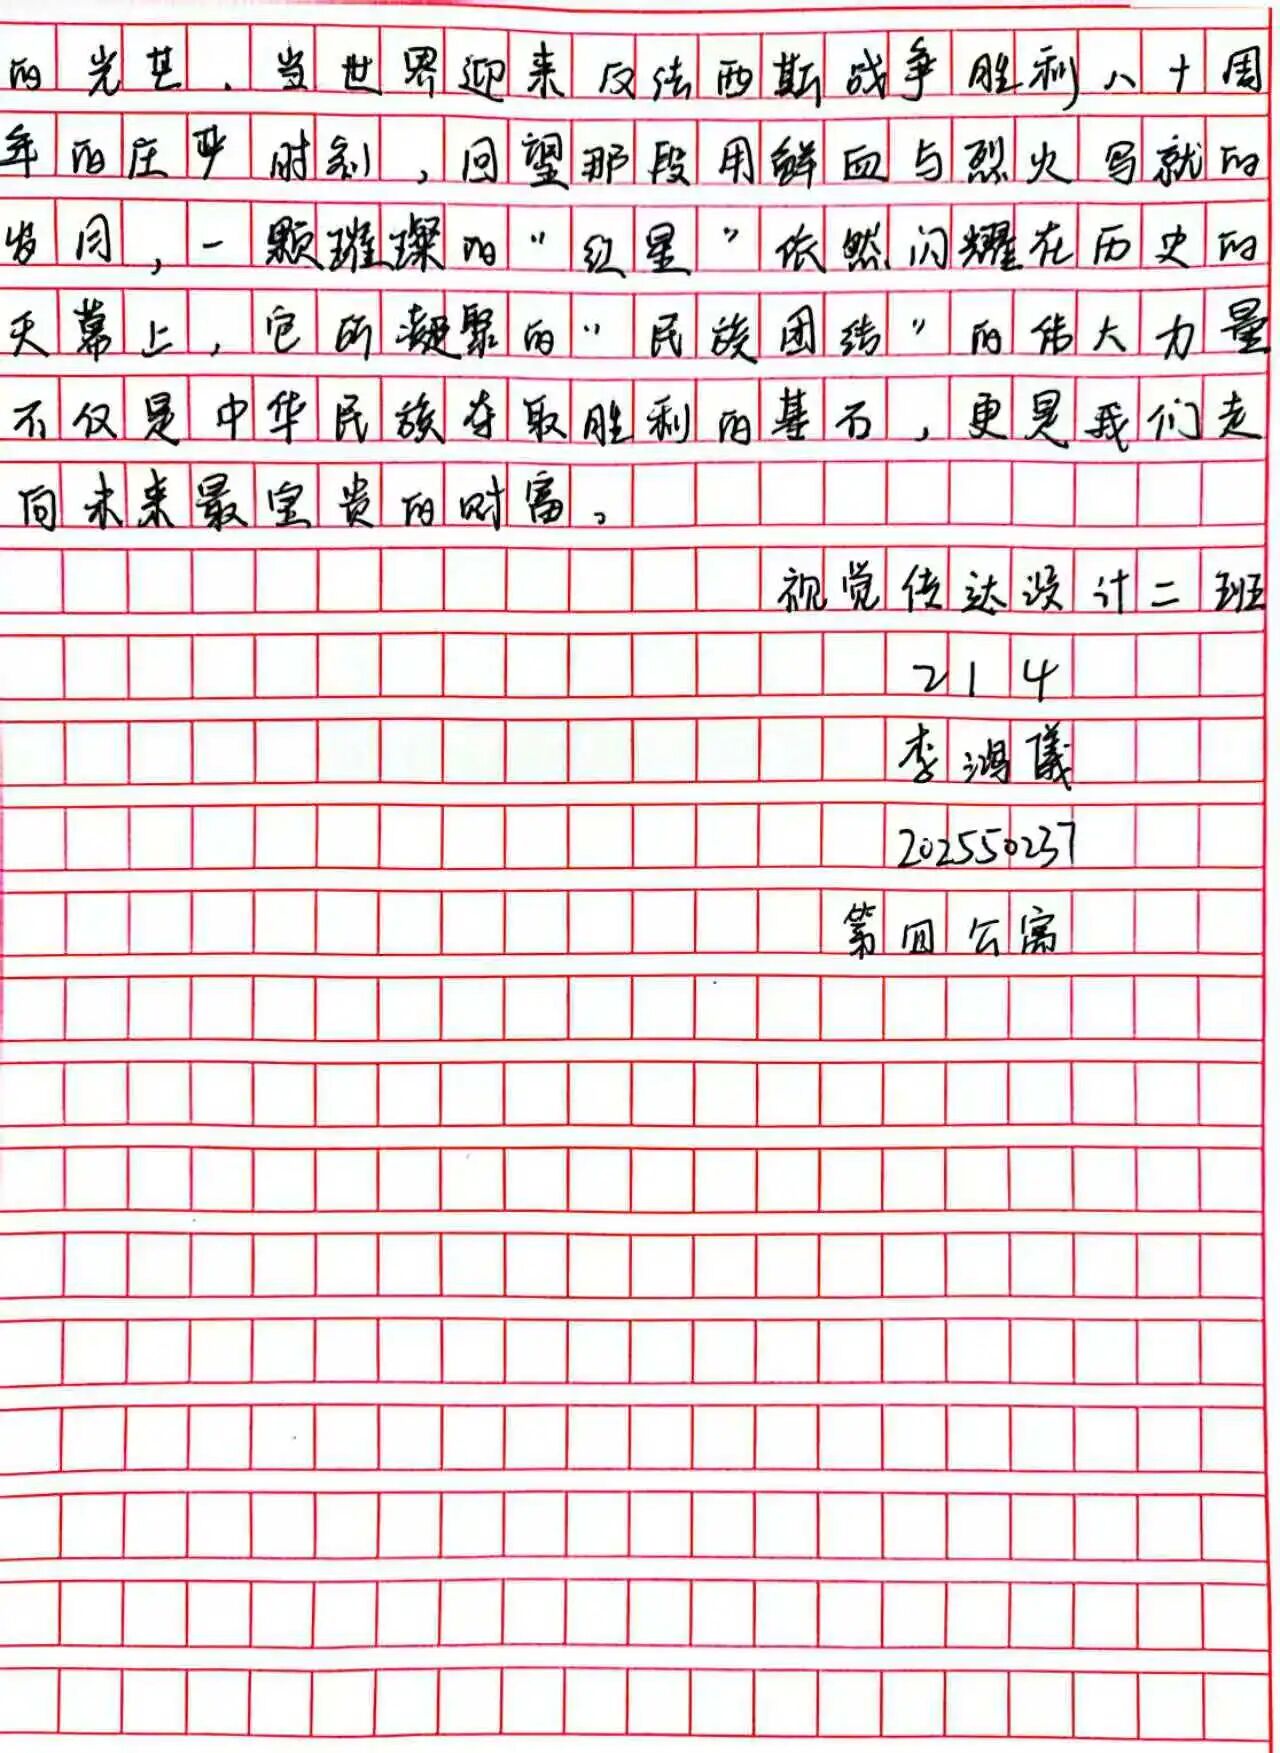 的光芒.当世界迎来反法西斯战争胜利八十周
年的庄严时刻，回望那段用鲜血与烈火写就的
岁月，一颗璀璨的“红星”依然闪耀在历史的
天幕上，它所凝聚的“民族团结”的伟大力量
不仅是中华民族夺取胜利的基石，更是我们走
向未来最宝贵的财富。
视觉传达设计二班
214
李鸿儀
202550237
第四公寓